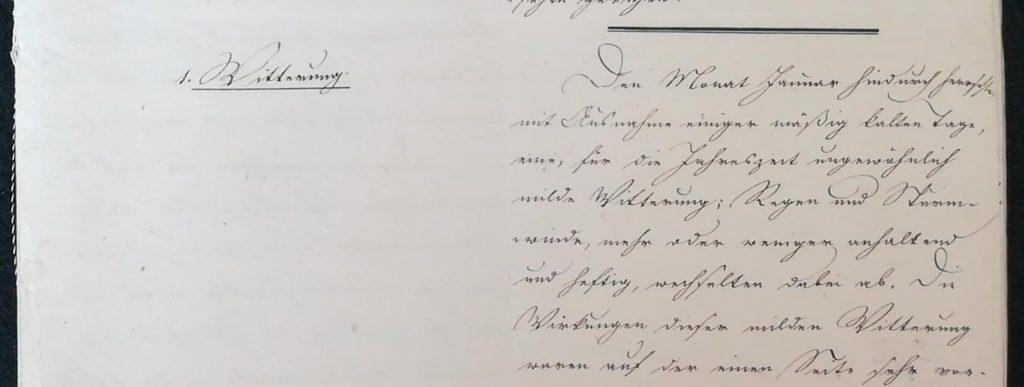 1. Witterung.
Den Monat Januar hindurch herrschte
mit Ausnahme einiger mäßig kalten Tage,
eine, für die Jahreszeit ungewöhnlich
milde Witterung; Regen und Sturm-
winde, mehr oder weniger anhaltend
und heftig, wechselten dabei ab. Die
Wirkungen dieser milden Witterung
waren auf der einen Seite sehr vor-